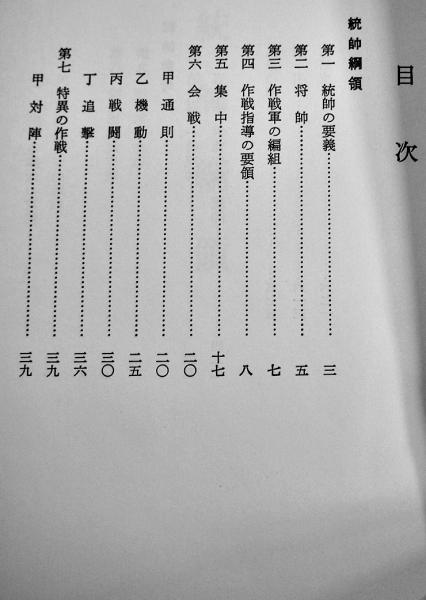 目次
統帥綱領
第一 統帥の要義……………………………三
第二 将帥……………………………五
第三 作戦軍の編組……………………………七
第四 作戦指導の要領……………………………八
第五 集中……………………………十七
第六 会戦……………………………二〇
甲 通則……………………………二〇
乙 機動……………………………二五
丙 戦闘……………………………三〇
丁 追撃……………………………三六
第七 特異の作戦……………………………三九
甲 対陣……………………………三九